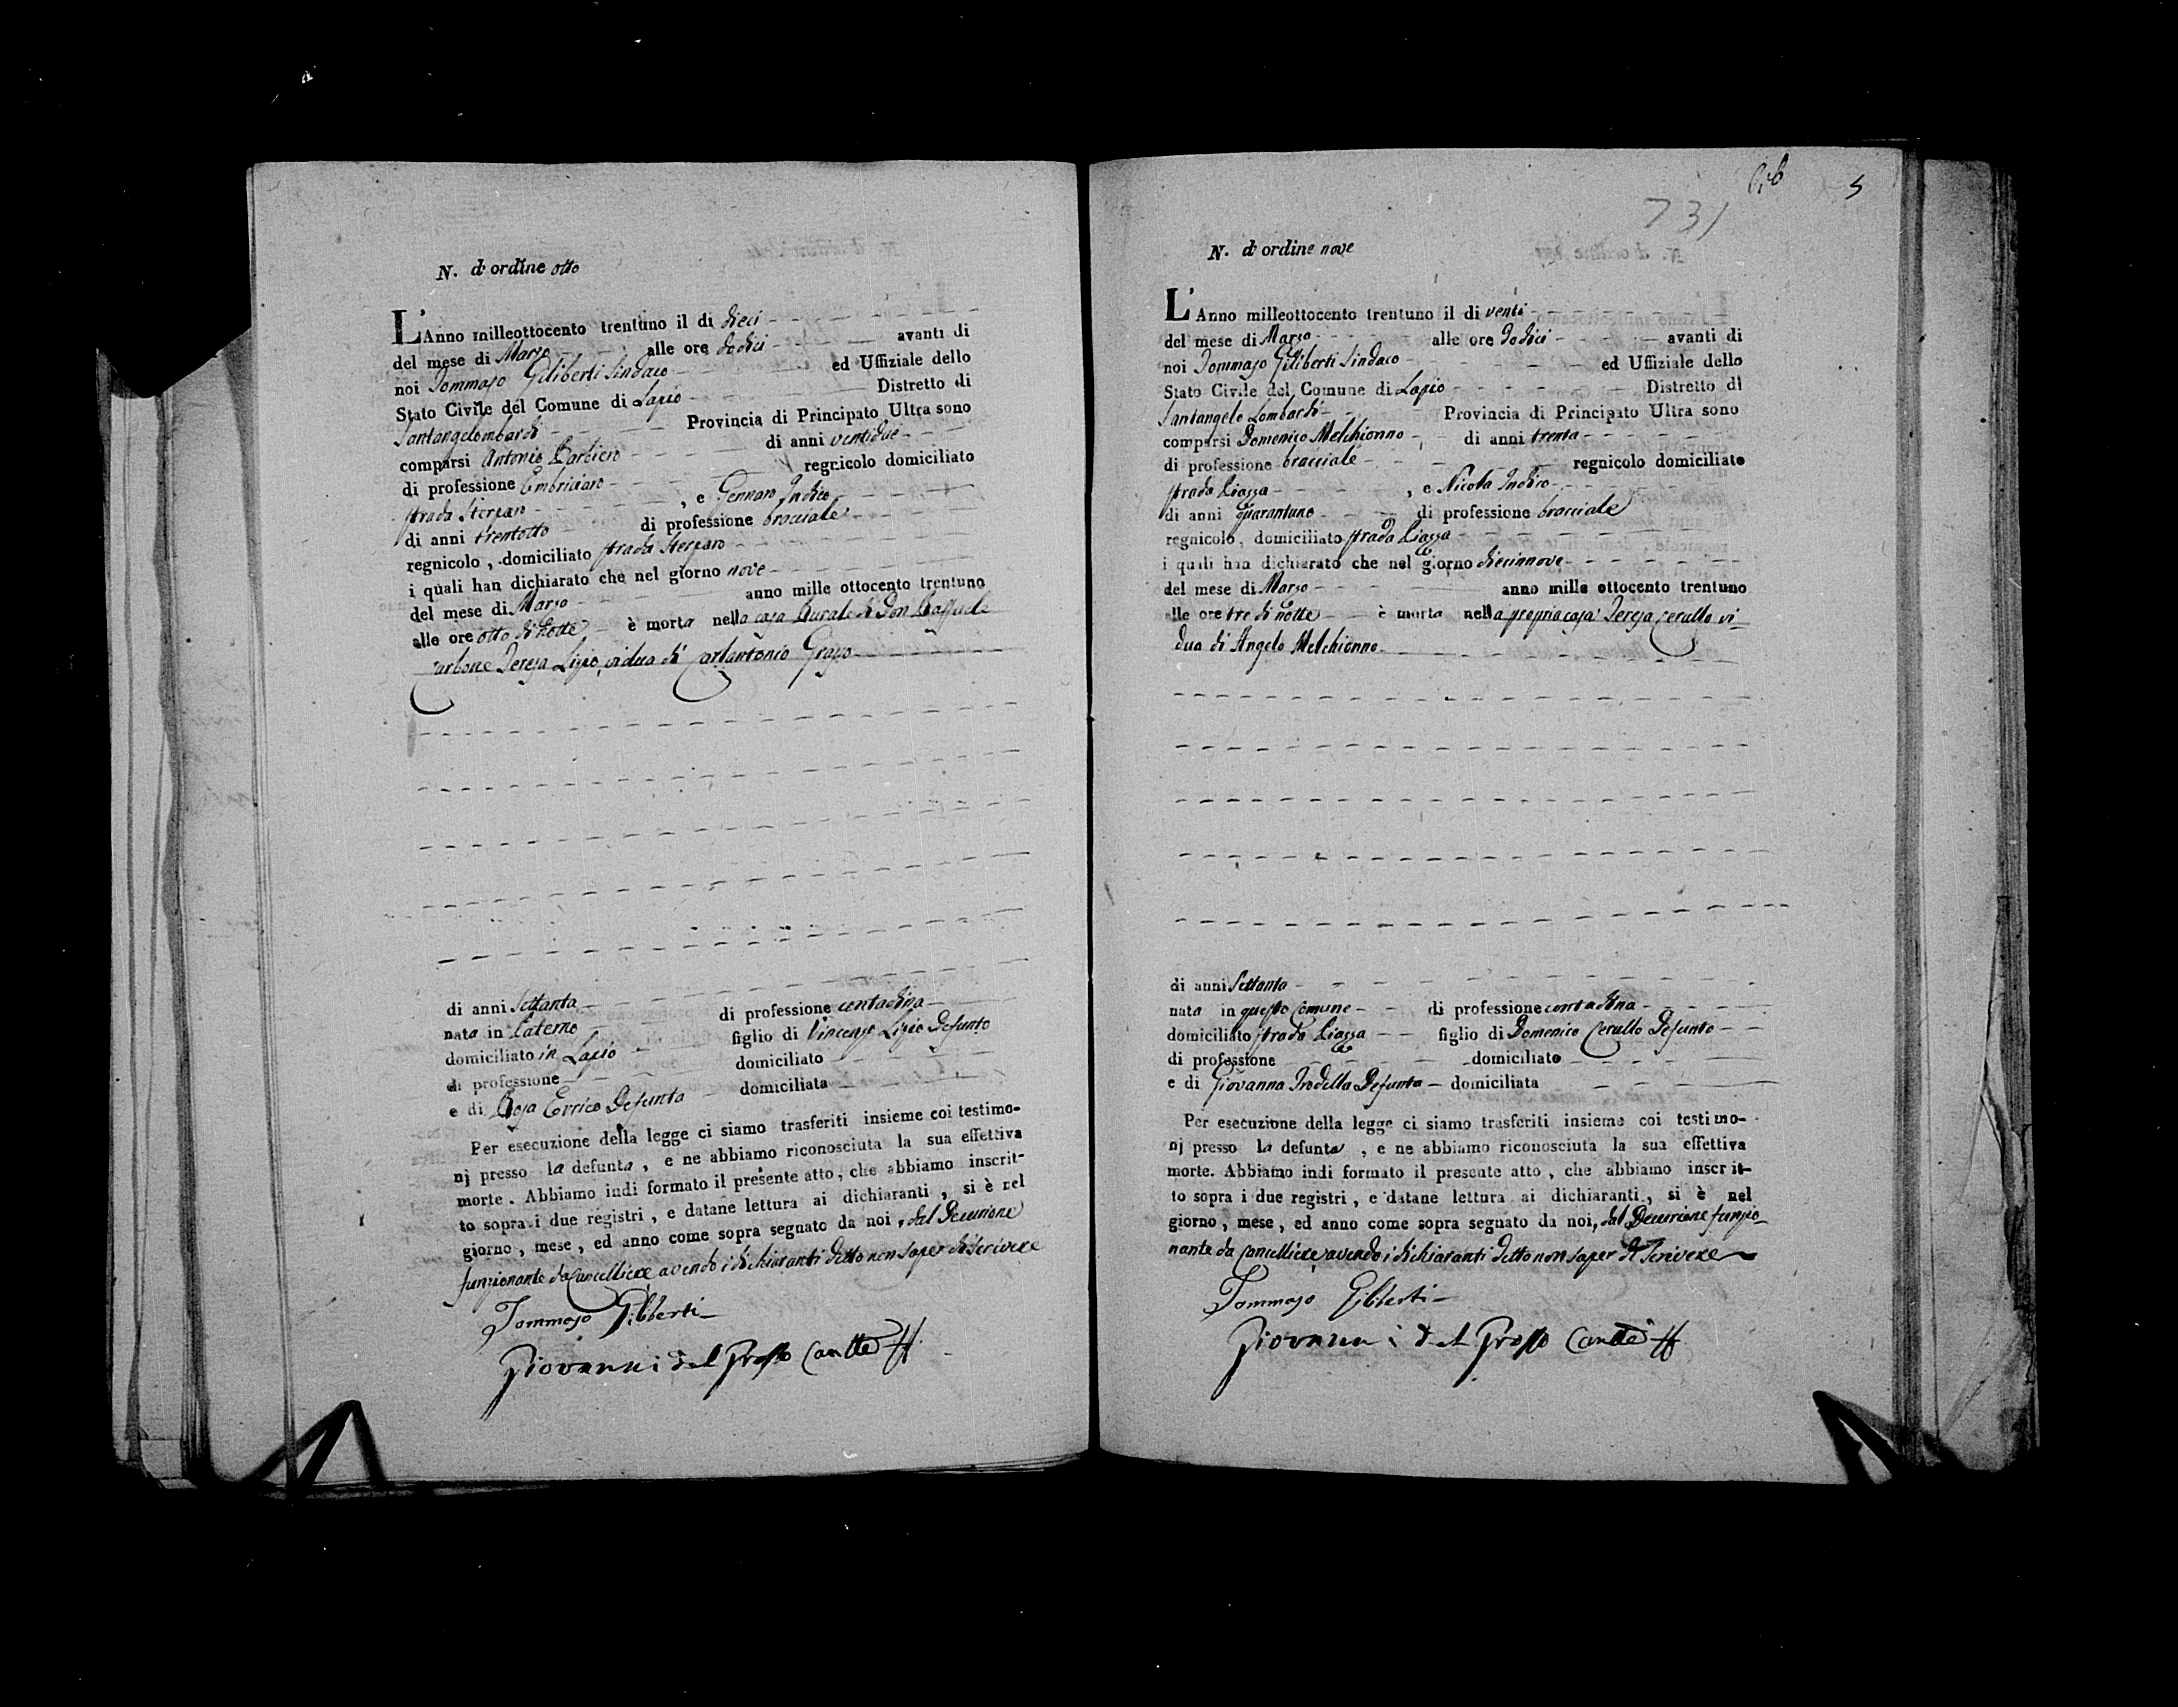 N. d'ordine otto
L'Anno milleottocento trentuno il di dieci
del mese di Marzo alle ore dodici avanti di
noi Tommaso Giliberti Sindaco ed Uffiziale dello
Stato Civile del Comune di Lapio Distretto di
Santangelombardi Provincia di Principato Ultra sono
comparsi Antonio Barbiero di anni ventidue
di professione Embriciaro regnicolo domiciliato
strada Sterparo , e Gennaro Indico
di anni trentotto di professione bracciale
regnicolo , domiciliato strada Sterparo
i quali han dichiarato che nel giorno nove
del mese di Marzo anno mille ottocento trentuno
alle ore otto di notte è morta nella casa Rurale di Don Raffaele
Carbone Teresa Lizio vidua di Carlantonio Grasso
di anni Settanta di professione contadina
nata in Paterno figlio di Vincenzo Lizio Defunto
domiciliato in Lapio domiciliato
di professione domiciliata
e di Rosa Errico Defunta
Per esecuzione della legge ci siamo trasferiti insieme coi testimo-
nj presso la defunta , e ne abbiamo riconosciuta la sua effettiva
morte . Abbiamo indi formato il presente atto , che abbiamo inscrit-
to sopra i due registri , e datane lettura ai dichiaranti , si è nel
giorno , mese , ed anno come sopra segnato da noi , dal Decurione
funzionante da Cancelliere avendo i dichiaranti detto non saper di Scrivere
Tommaso Giliberti
Giovanni del Grosso
731 5
N. d'ordine nove
L'Anno milleottocento trentuno il di venti
del mese di Marzo alle ore Dodici avanti di
noi Tommaso Giliberti Sindaco ed Uffiziale dello
Stato Civile del Comune di Lapio Distretto di
Santangelo Lombardi Provincia di Principato Ultra sono
comparsi Domenico Melchionno di anni trenta
di professione bracciale regnicolo domiciliato
strada Piazza , e Nicola Indico
di anni quarantuno di professione bracciale
regnicolo, domiciliato strada Piazza
i quali han dichiarato che nel giorno diecinnove
del mese di Marzo anno mille ottocento trentuno
alle ore tre di notte è morta nella propria casa Teresa Cerullo vi-
dua di Angelo Melchionno
di anni Settanta
nata in questo Comune di professione contadina
domiciliato strada Piazza figlio di Domenico Cerullo Defunto
di professione domiciliato
e di Giovanna Trodella Defunta domiciliata
Per esecuzione della legge ci siamo trasferiti insieme coi testimo-
nj presso la defunta , e ne abbiamo riconosciuta la sua effettiva
morte. Abbiamo indi formato il presente atto , che abbiamo inscrit-
to sopra i due registri , e datane lettura ai dichiaranti , si è nel
giorno , mese , ed anno come sopra segnato da noi, dal Decurione funzio-
nante da Cancelliere avendo i dichiaranti detto non saper di Scrivere
Tommaso Giliberti
Giovanni del Grosso